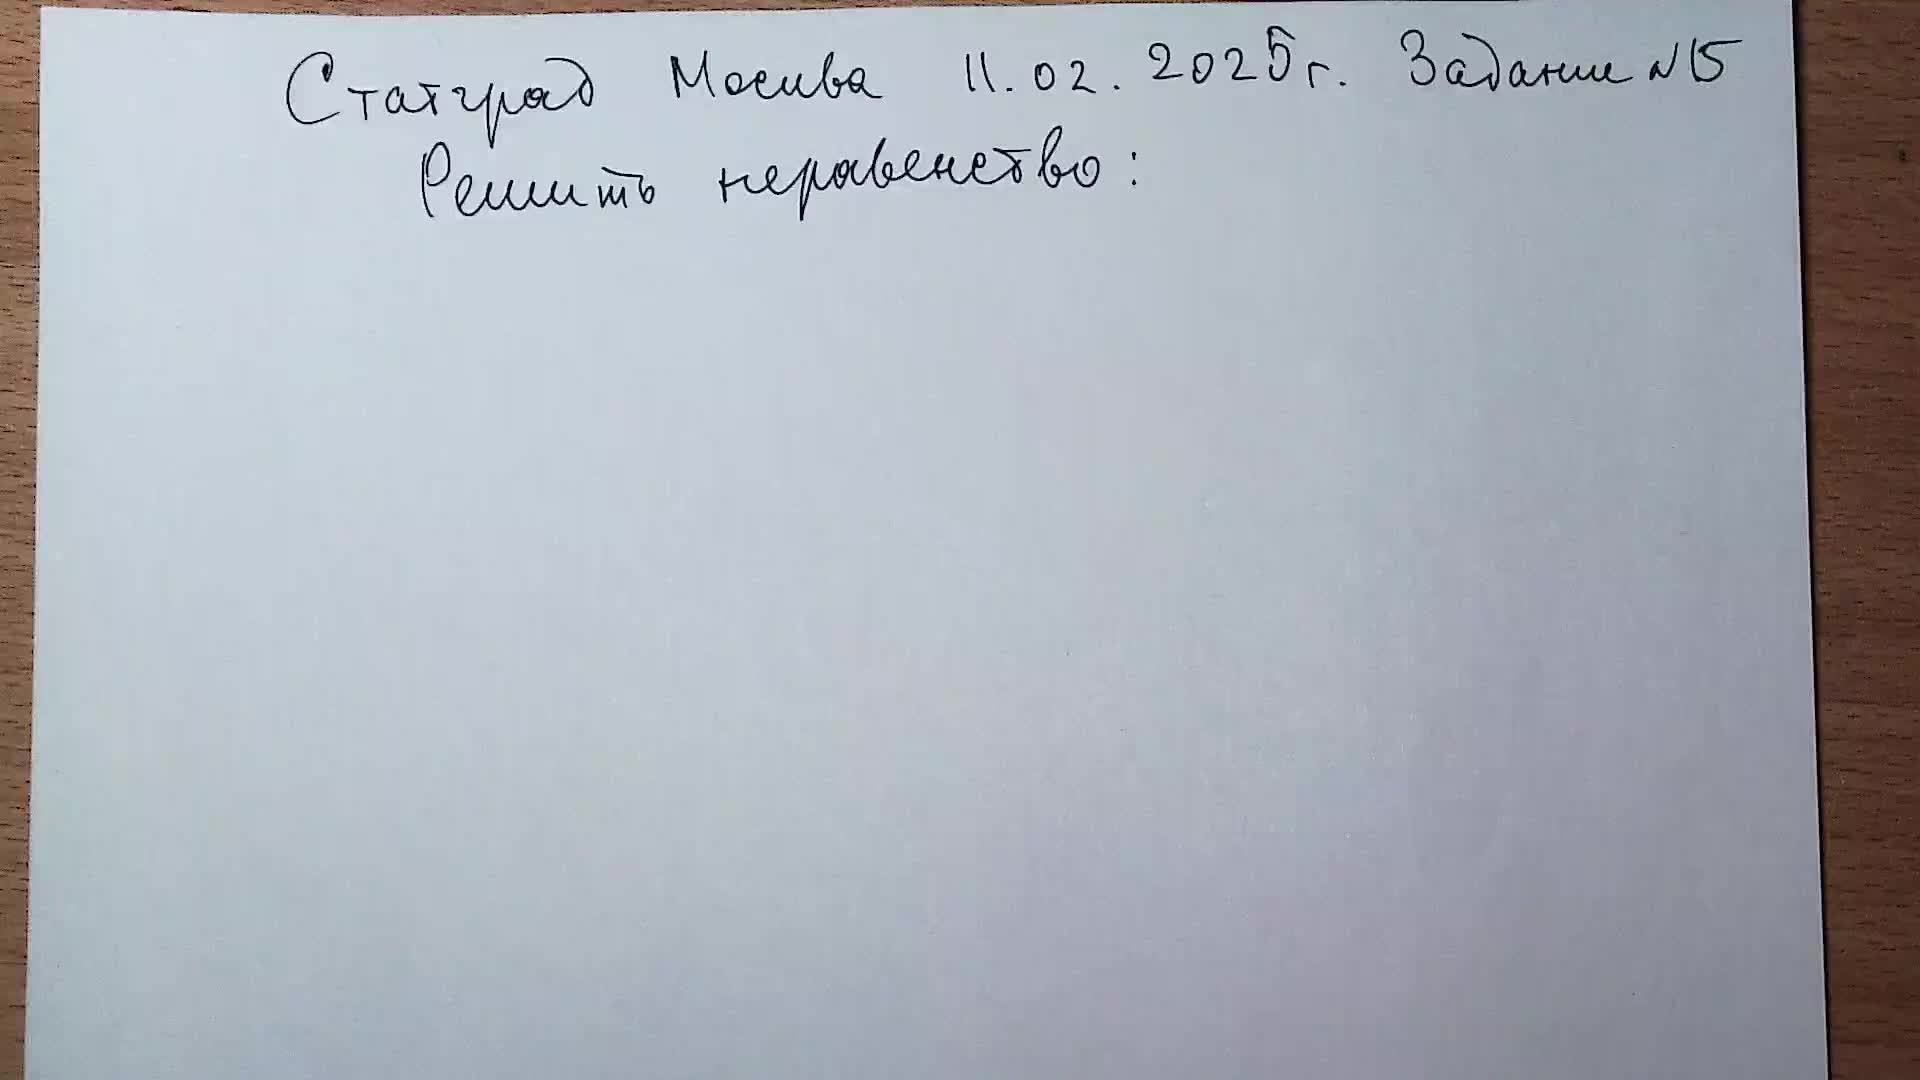 Статград Москва 11.02.2025г. Задание №15
Решить неравенство: